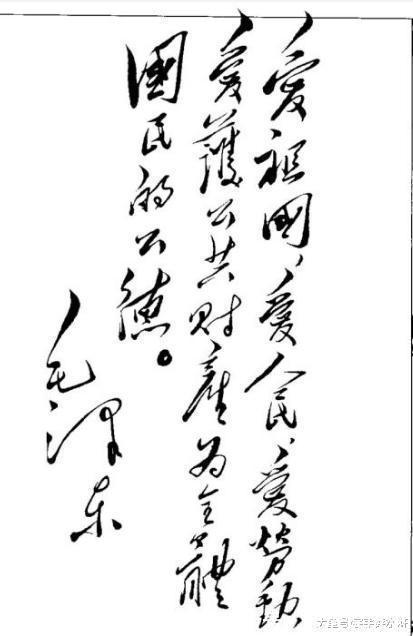 愛祖國、愛人民、愛勞動、
愛護公共财產为全體
國民的公德。
毛泽东